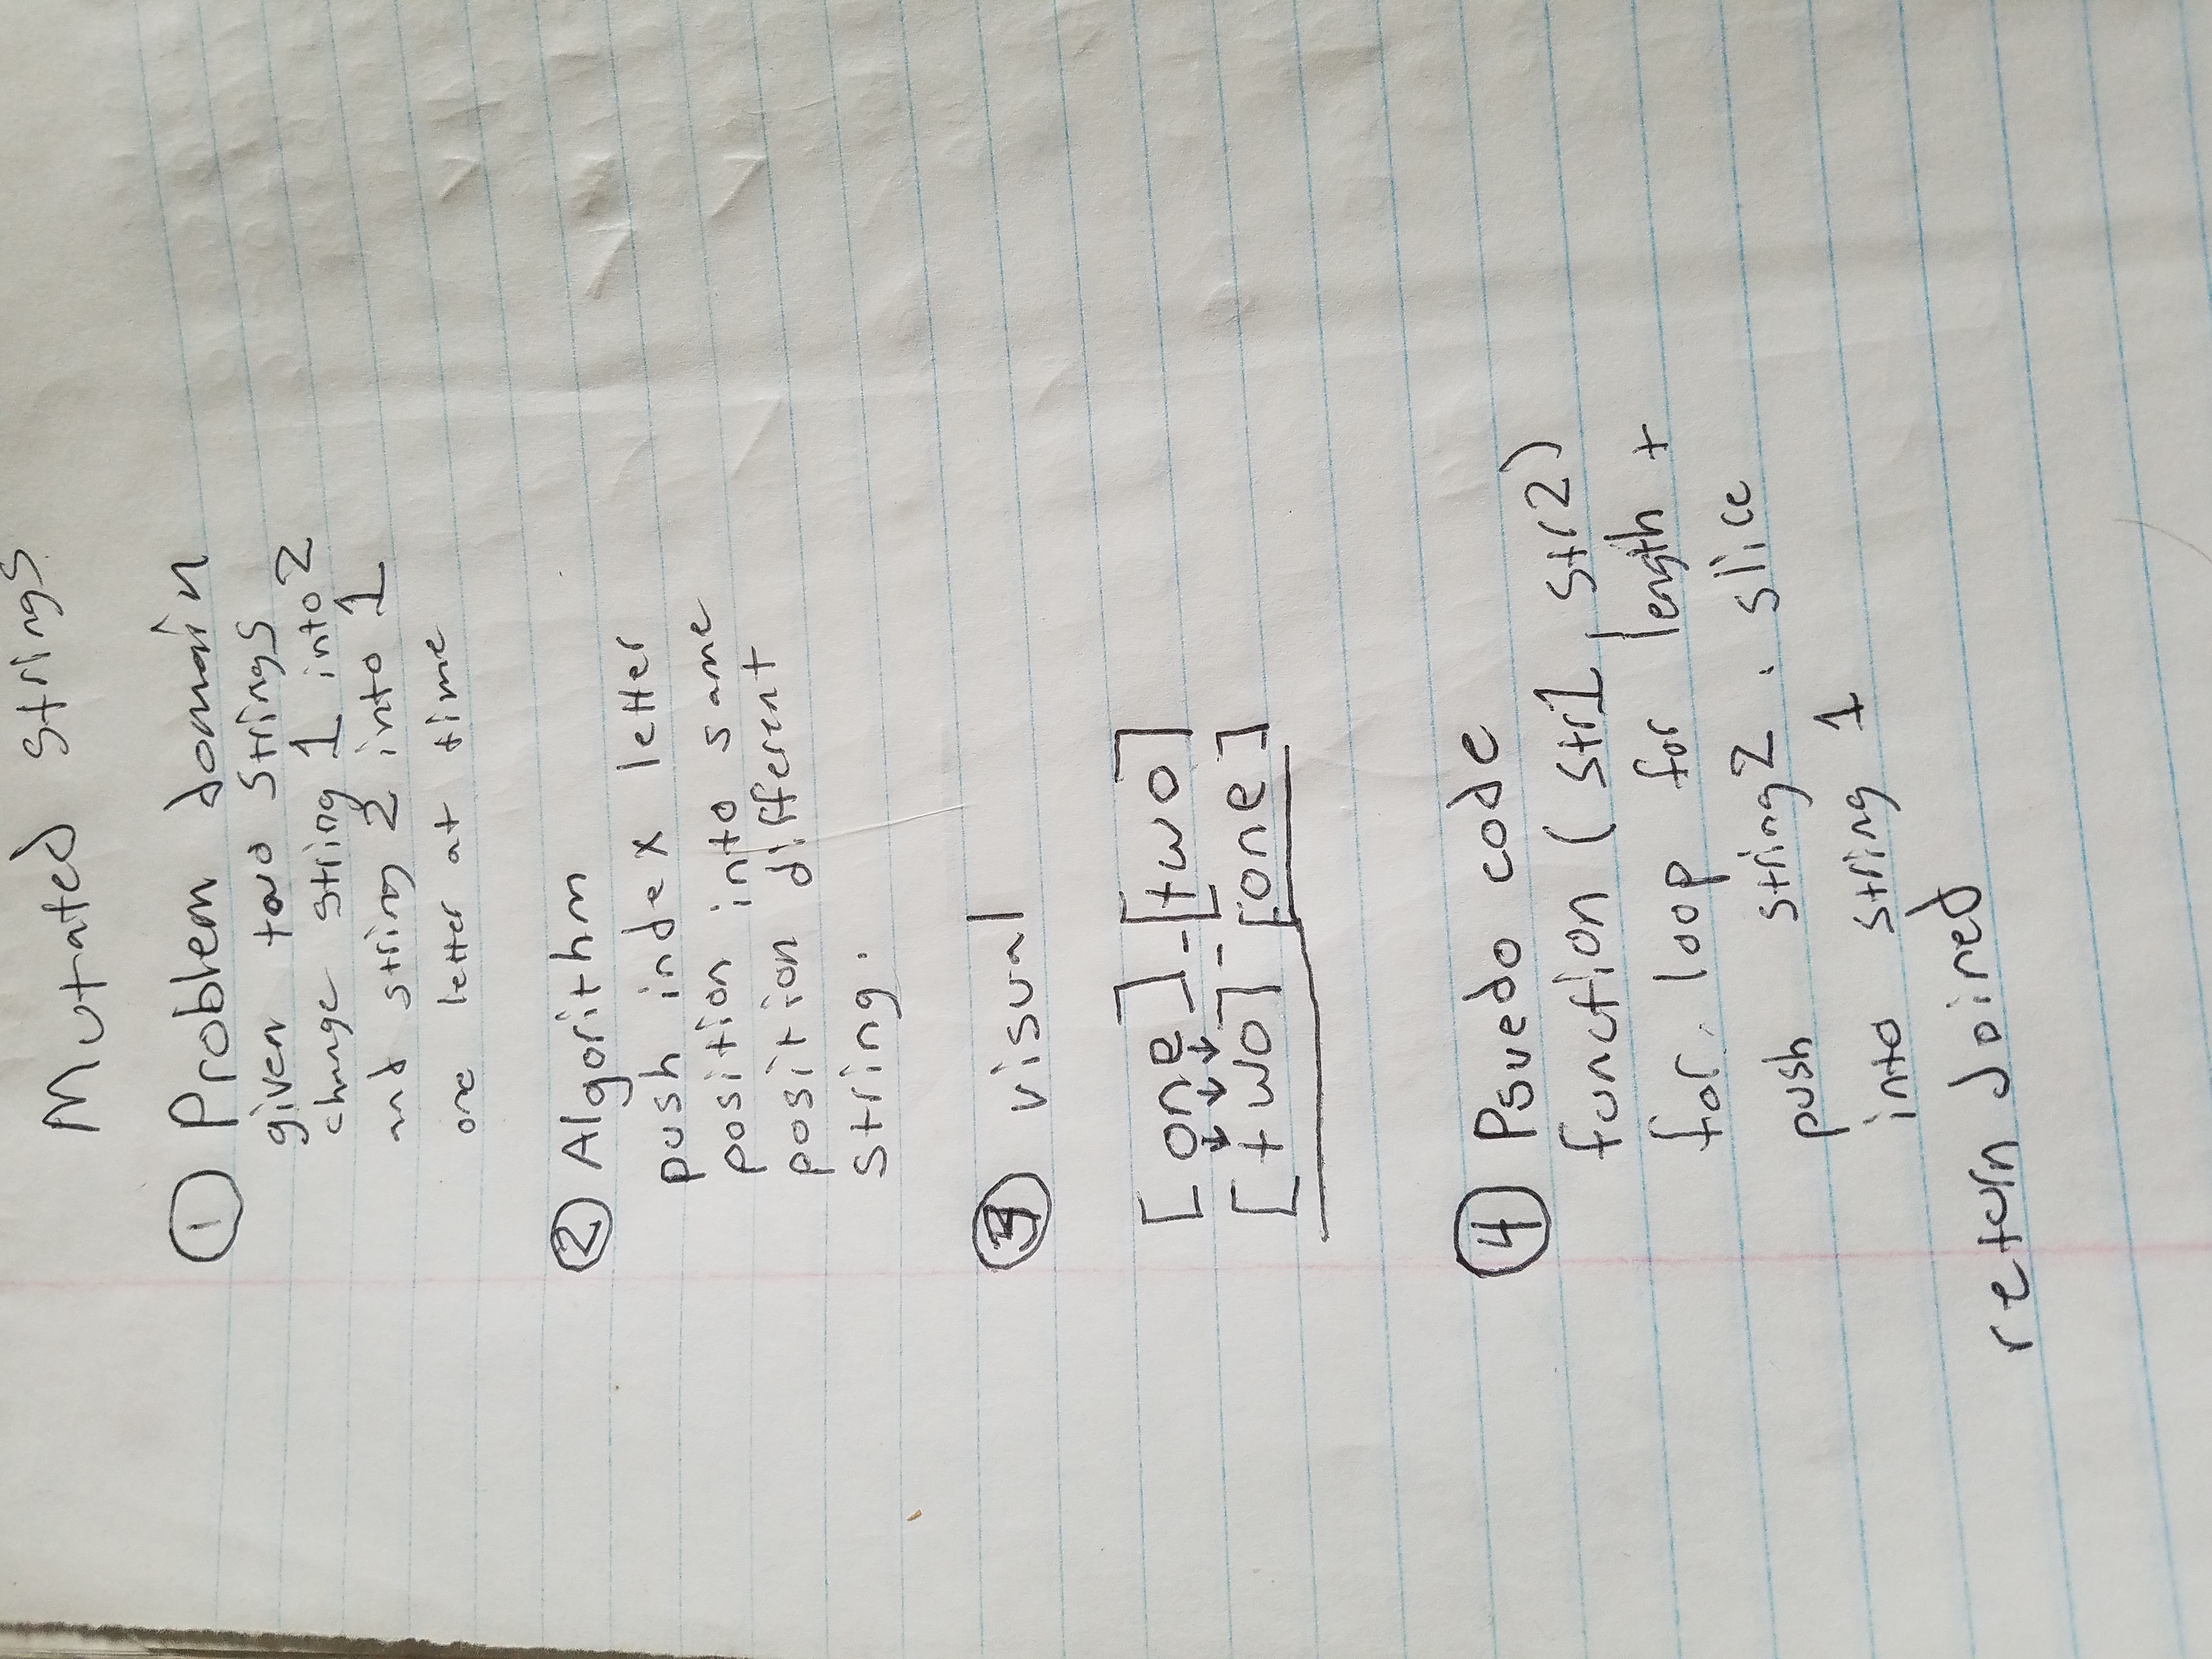 Mutated strings
① Problem domain
given two strings
change string 1 into 2
and string 2 into 1
one letter at time
② Algorithm
push index letter
position into same
position different
string.
③ visual
[one]-[two]
[two]-[one]
④ Psuedo code
function (str1, str2)
for loop for length +
push string2 . slice
into string 1
return Joined